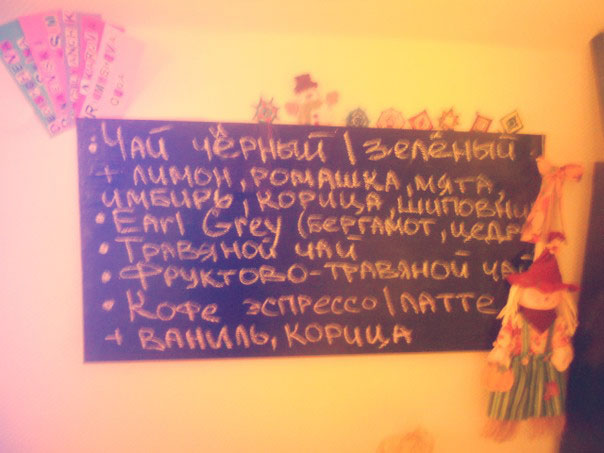 • Чай чёрный / зелёный
+ лимон, ромашка, мята,
имбирь, корица, шиповни
• Earl Grey (бергамот, цедр
• Травяной чай
• Фруктово-травяной ча
• Кофе эспрессо / латте
+ ваниль, корица